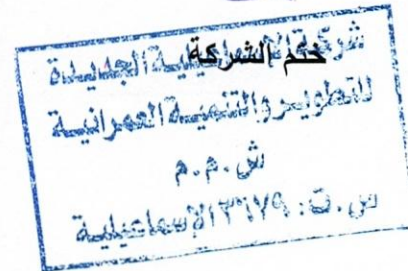 ختم الشركة
شركة الإسماعيلية الجديدة
للتطوير والتنمية العمرانية
ش.م.م
س.ت: ٣٦١٧٩ الإسماعيلية